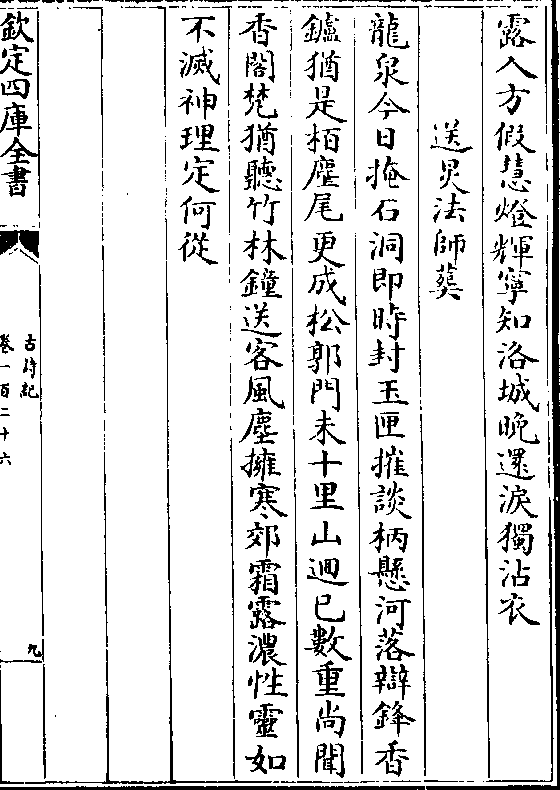 露人方假慧燈輝寧知洛城晚還淚獨沾衣
送炅法師葬
龍泉今日掩石洞即時封玉匣摧談柄懸河落辯鋒香
鑪猶是栢麈尾更成松郭門未十里山迴已數重尚聞
香閣梵猶聽竹林鐘送客風塵擁寒郊霜露濃性靈如
不滅神理定何從
欽定四庫全書
古詩紀
卷一百二十六
九